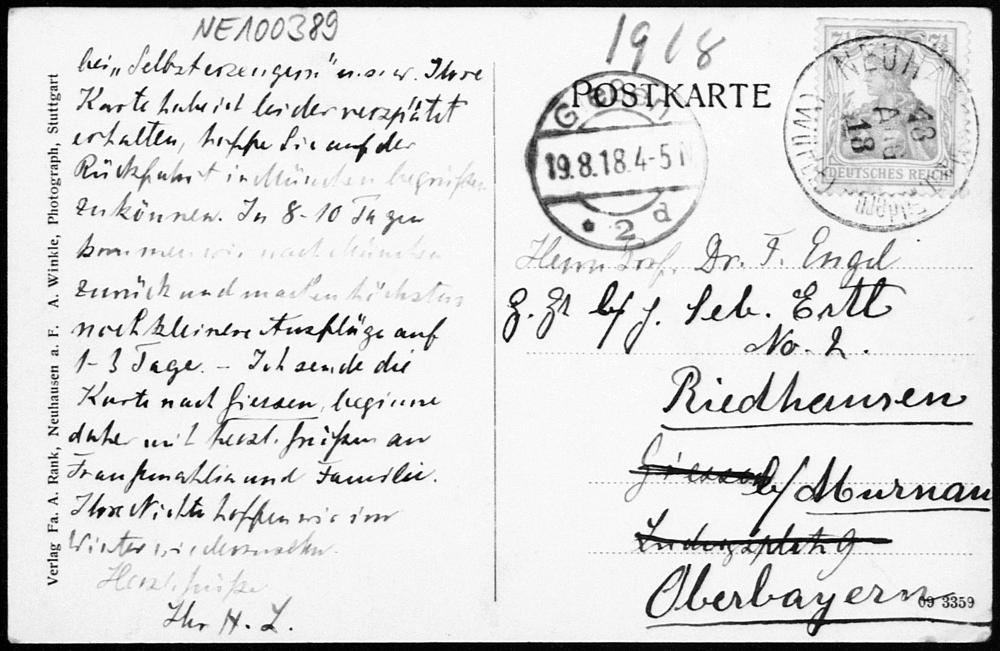 NE100389
1918
bei „Selbsterzeugern" u.s.w. Ihre
Karte habe ich leider verspätet
erhalten, hoffe Sie auf der
Rückfahrt in München begrüßen
zu können. In 8-10 Tagen
kommen wir nach München
zurück und machen höchstens
noch kleinere Ausflüge auf
1-3 Tage. – Ich sende die
Karte nach Giessen, beginne
daher mit herzl. Grüßen an
Frau Gemahlin und Familie.
Ihre Nichte hoffen wir im
Winter wiederzusehn.
Herzl. Grüße
Ihr H. L.
Verlag Fa. A. Rank, Neuhausen a. F. A. Winkle, Photograph, Stuttgart
POSTKARTE
19.8.18.4-5N
* 2 d
NEUH
18
AUG
18
7½ 7½
DEUTSCHES REICH
Herrn Prof. Dr. F. Engel
z. Zt b/ H. Seb. Ertl
No. 2.
Riedhausen
Giessen b/ Murnau
Ludwigsplatz 9
Oberbayern
09 3359